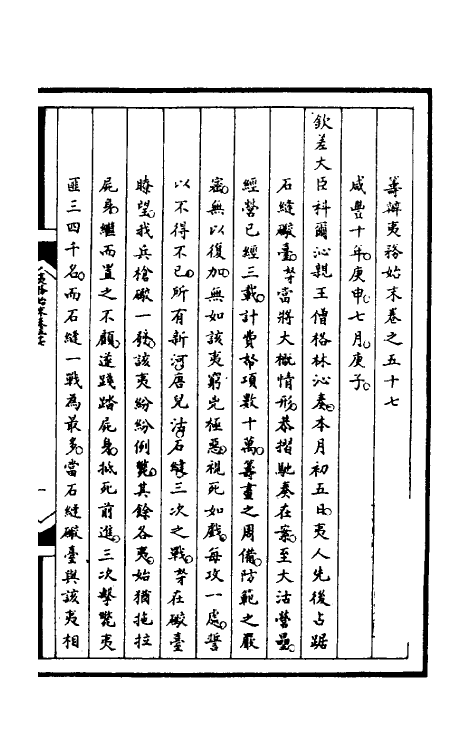 籌辦夷務始末卷之五十七
咸豐十年。庚申七月。庚子。
欽差大臣科爾沁親王僧格林沁奏。本月初五日。夷人先後占踞
石縫礮臺。等當將大概情形。恭摺馳奏在案。至大沽營壘。
經營已經三載。計費帑項數十萬。籌畫之周備。防範之嚴
密。無以復加。無如該夷窮兇極惡。視死如戲。每攻一處。誓
以不得不已。所有新河唐兒沽。石縫三次之戰。等在礮臺
瞭望。我兵槍礮一發。該夷紛紛倒斃。其餘各夷。始猶拖拉
屍身。繼而置之不顧。遂蹊踏屍身。抵死前進。三次擊斃夷
匪三四千名。而石縫一戰為最多。當石縫礮臺與該夷相